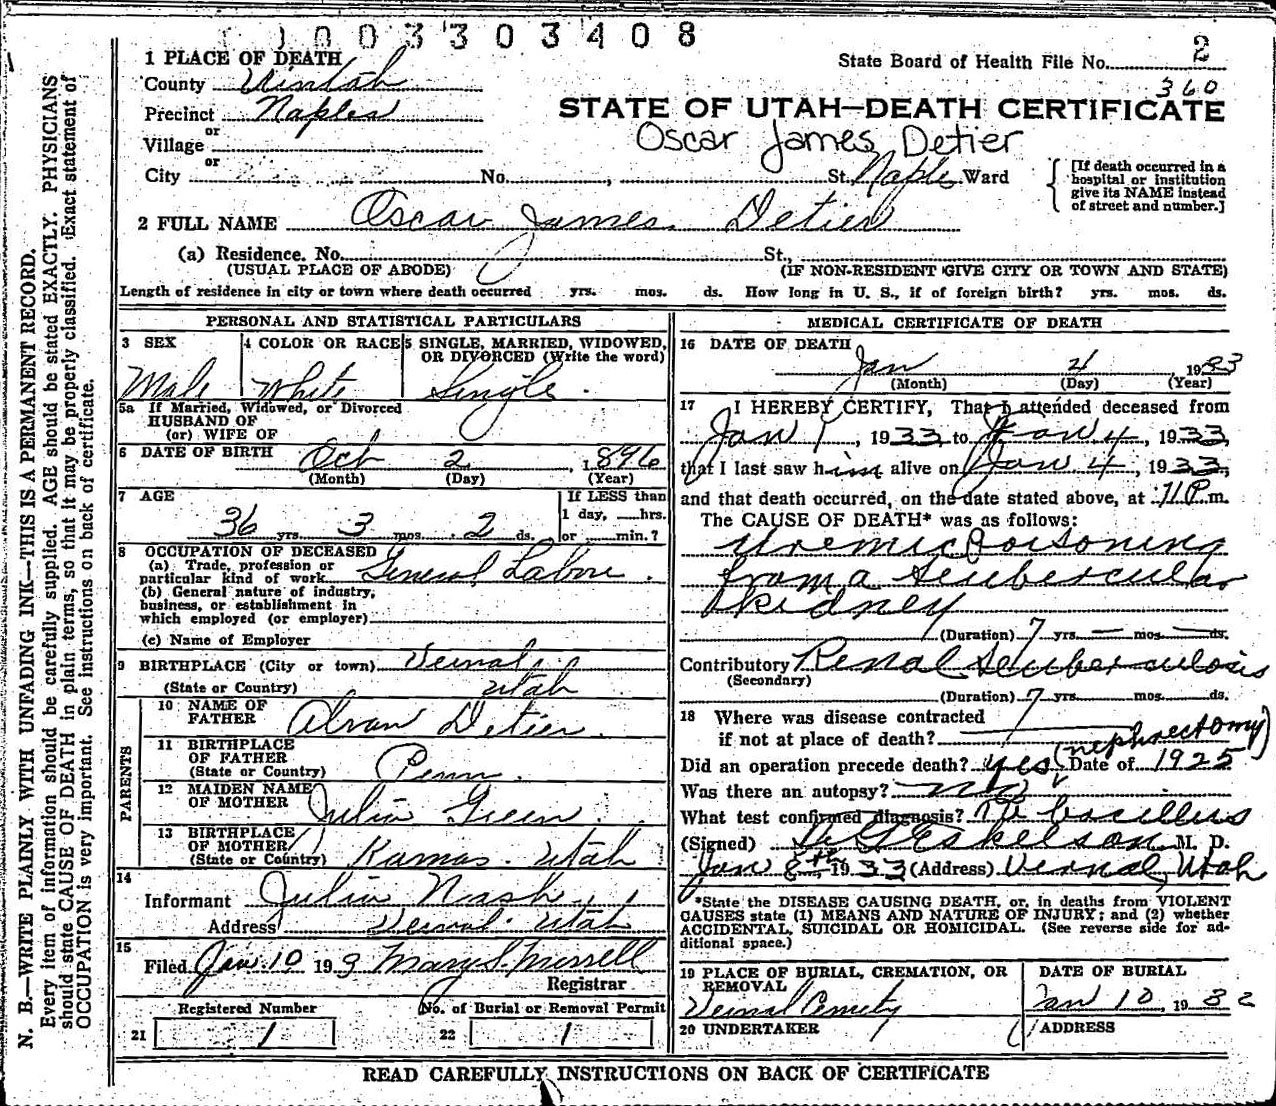 003303408
1 PLACE OF DEATH
State Board of Health File No. 2
County Uintah
360
Precinct Naples
STATE OF UTAH—DEATH CERTIFICATE
or
Oscar James Detier
Village
or
City No. , St. Naples Ward
[If death occurred in a
hospital or institution
give its NAME instead
of street and number.]
2 FULL NAME Oscar James Detier
(a) Residence. No. St.,
(USUAL PLACE OF ABODE) (IF NON-RESIDENT GIVE CITY OR TOWN AND STATE)
Length of residence in city or town where death occurred yrs. mos. ds. How long in U. S., if of foreign birth? yrs. mos. ds.
PERSONAL AND STATISTICAL PARTICULARS
3 SEX
Male
4 COLOR OR RACE
White
5 SINGLE, MARRIED, WIDOWED,
OR DIVORCED (Write the word)
Single.
5a If Married, Widowed, or Divorced
HUSBAND OF
(or) WIFE OF
6 DATE OF BIRTH Oct 2, 1896
(Month) (Day) (Year)
7 AGE
36 yrs. 3 mos. 2 ds.
If LESS than
1 day, hrs.
or min.?
8 OCCUPATION OF DECEASED
(a) Trade, profession or
particular kind of work General Labore.
(b) General nature of industry,
business, or establishment in
which employed (or employer)
(c) Name of Employer
9 BIRTHPLACE (City or town) Vernal
(State or Country) Utah
PARENTS
10 NAME OF
FATHER Alvan Detier.
11 BIRTHPLACE
OF FATHER
(State or Country) Penn.
12 MAIDEN NAME
OF MOTHER Julia Green.
13 BIRTHPLACE
OF MOTHER
(State or Country) Kamas. Utah
14
Informant Julia Nash
Address Vernal. Utah
15
Filed Jan. 10 193 Mary S.
Registrar
Registered Number
21 1
No. of Burial or Removal Permit
22 1
MEDICAL CERTIFICATE OF DEATH
16 DATE OF DEATH
Jan 4, 1933
(Month) (Day) (Year)
17 I HEREBY CERTIFY, That I attended deceased from
Jan 1, 1933 to Jan 4, 1933,
that I last saw him alive on Jan 4, 1933,
and that death occurred, on the date stated above, at 11P m.
The CAUSE OF DEATH* was as follows:
Uremic Poisoning
from a teubercular
kidney
(Duration) 7 yrs. — mos. — ds.
Contributory Renal teuberculosis
(Secondary)
(Duration) 7 yrs. mos. ds.
18 Where was disease contracted
if not at place of death?
(nephrectomy)
Did an operation precede death? yes Date of 1925
Was there an autopsy? no
What test confirmed diagnosis? TB bacillus
(Signed) Eskelson M. D.
Jan 8th, 1933 (Address) Vernal, Utah
*State the DISEASE CAUSING DEATH, or, in deaths from VIOLENT
CAUSES state (1) MEANS AND NATURE OF INJURY; and (2) whether
ACCIDENTAL, SUICIDAL OR HOMICIDAL. (See reverse side for ad-
ditional space.)
19 PLACE OF BURIAL, CREMATION, OR
REMOVAL
Vernal Cemety
DATE OF BURIAL
Jan 10, 1932
20 UNDERTAKER
ADDRESS
READ CAREFULLY INSTRUCTIONS ON BACK OF CERTIFICATE
N. B.—WRITE PLAINLY WITH UNFADING INK—THIS IS A PERMANENT RECORD.
Every item of information should be carefully supplied. AGE should be stated EXACTLY. PHYSICIANS
should state CAUSE OF DEATH in plain terms, so that it may be properly classified. Exact statement of
OCCUPATION is very important. See instructions on back of certificate.